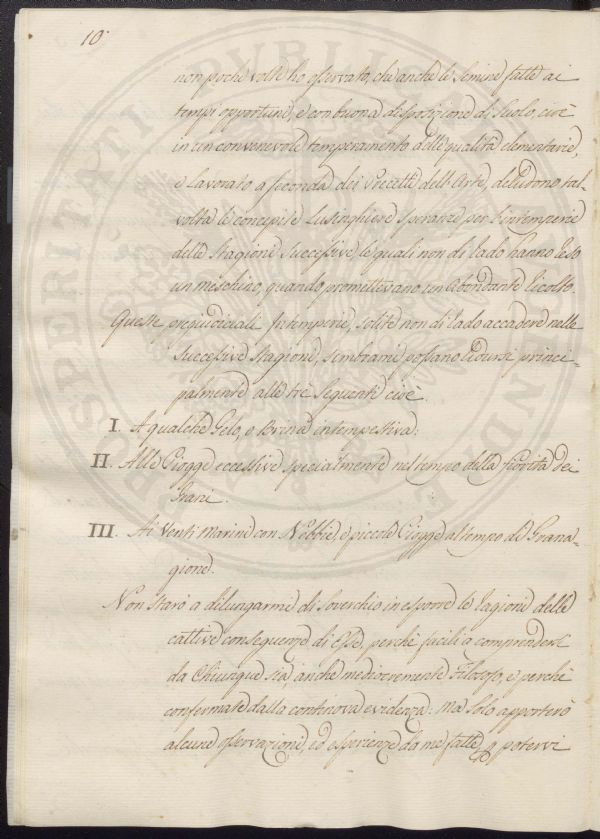 10
non poche volte ho osservato, che anche le Semine fatte ai
tempi opportuni, e con buona disposizione di Suolo, cioè
in un convenevole temperamento delle qualità elementarie,
e Lavorato a seconda dei Precetti dell'Arte, deludono tal-
volta le concepite Lusinghiere speranze per l'intemperie
delle Stagioni Successive, le quali non di rado hanno reso
un meschino, quando promettevano un'Abondante ricolto.
Queste pregiudiciali Intemperie, solite non di rado accadere nelle
Successive Stagioni, sembrami possano ridursi princi-
palmente alle tre Seguenti cioè.
I. A qualche Gelo, o Brina intempestiva:
II. Alle Piogge eccessive specialmente nel tempo della fiorita dei
Grani.
III. Ai Venti Marini con Nebbie, e piccole Piogge al tempo di Grana-
gione.
Non starò a dilungarmi di Soverchio in esporre le ragioni delle
cattive conseguenze di esse, perchè facili a comprendersi
da Chiunque sia, anche mediocremente Filosofo, e perchè
confermate dalla continova evidenza: Ma Solo apporterò
alcune osservazioni, ed esperienze da me fatte, p potervi
PUBLICAE
PROSPERITATI